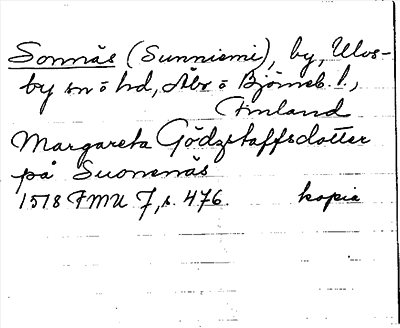 Sonnäs (Sunniemi), by, Ulvs-
by sn o hd, Åbo o Björneb. l.,
Finland
Margareta Gödzstaffsdotter
på Suonenäs
1518 FMU 7, s. 476. kopia